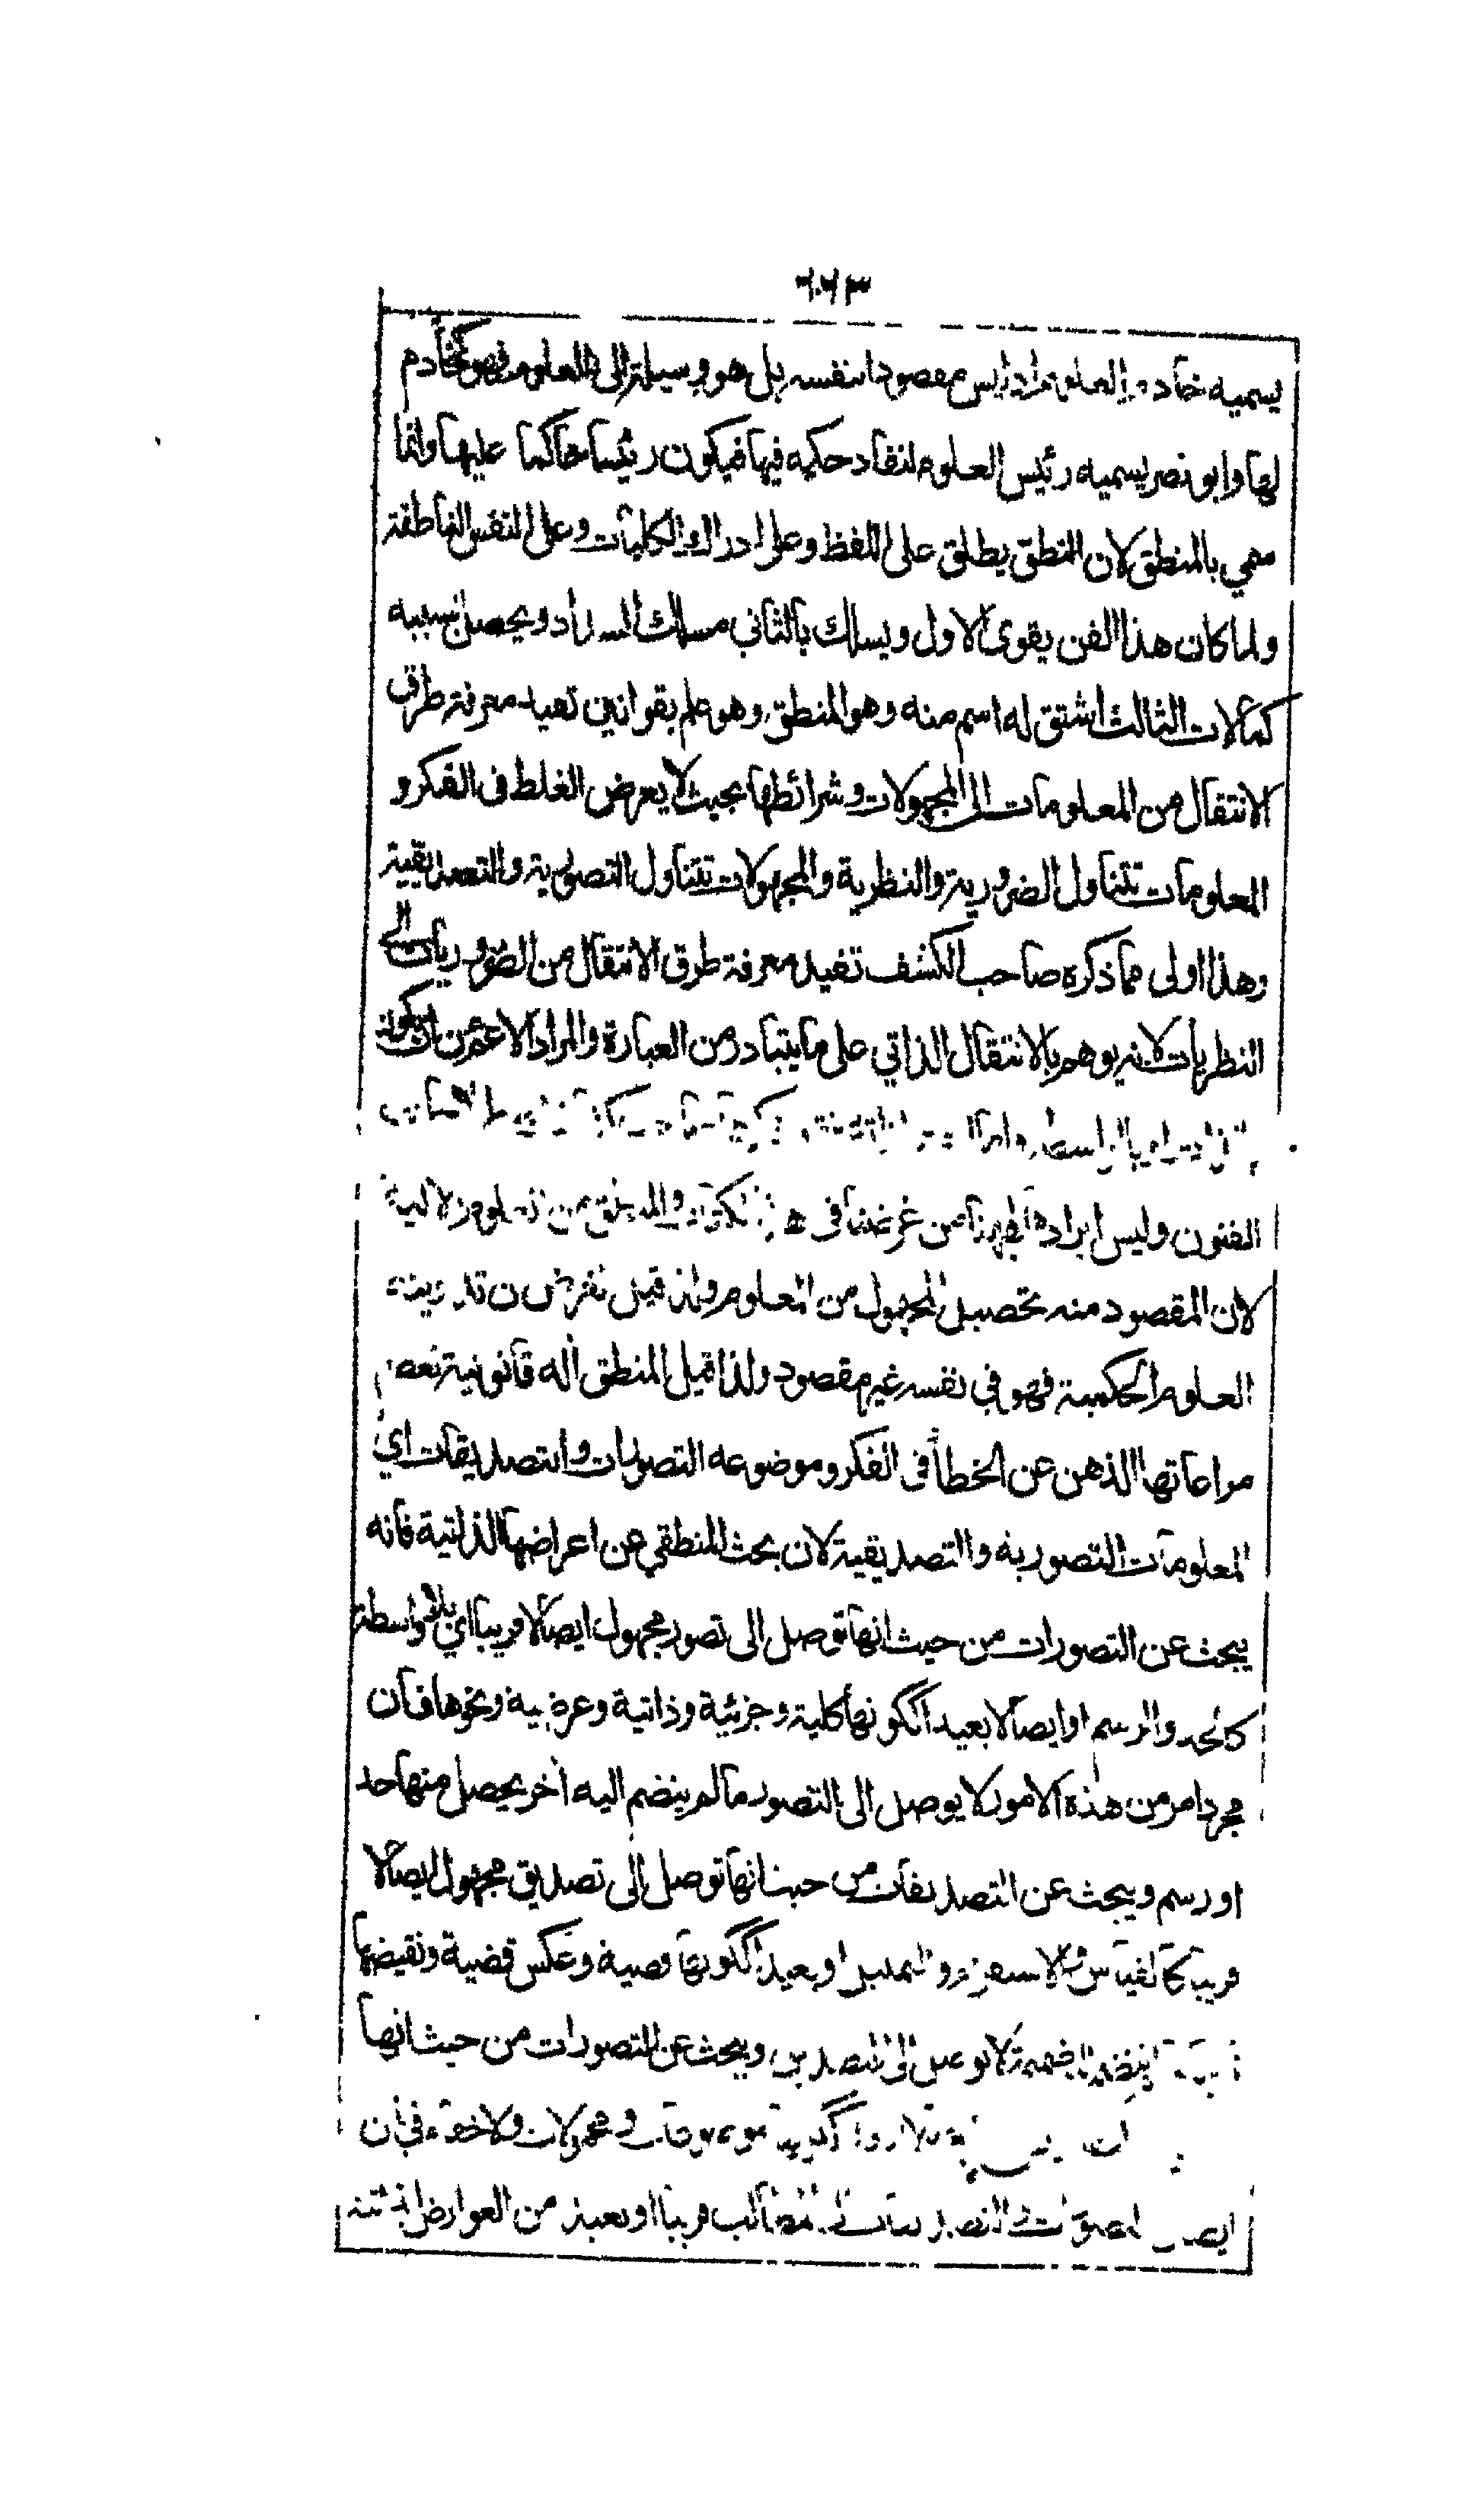 يسميه خادم العلوم اذ ليس مقصودا بنفسه بل هو وسيلة الى العلوم فهو كخادم
لها وابو نصر يسميه رئيس العلوم لنفاد حكمه فيها فيكون رئيسا حاكما عليها وانما
سمي بالمنطق لان النطق يطلق على اللفظ وعلى ادراك الكليات وعلى النفس الناطقة
ولما كان هذا الفن يقوى الاول ويسلك بالثاني مسلك السداد ويحصل بسببه
كمالات الثالث اشتق له اسم منه وهو المنطق وهو علم بقوانين تفيد معرفة طرق
الانتقال من المعلومات الى المجهولات وشرائطها بحيث لا يعرض الغلط فى الفكر و
المعلومات تتناول الضرورية والنظرية والمجهولات تتناول التصورية والتصديقية
وهذا اولى مما ذكره صاحب الكشف تفيد معرفة طرق الانتقال من الضروريات الى
النظريات لانه يوهم بالانتقال الذاتي على ما يتبادر من العبارة والمراد الاعم من ان يكون
بالواسطة
الفنون وليس ايرادها ههنا من غرضنا فى هذا والمنطق من العلوم الالية
لان المقصود منه تحصيل المجهول من المعلوم ولذا قيل الغرض من تدوينه
العلوم الحكمية فهو في نفسه غير مقصود ولذا قيل المنطق آلة قانونية تعصم
مراعاتها الذهن عن الخطأ فى الفكر وموضوعه التصورات والتصديقات اي
المعلومات التصورية والتصديقية لان بحث المنطقي عن اعراضها الذاتية فانه
يبحث عن التصورات من حيث انها توصل الى تصور مجهول ايصالا قريبا اي بلا واسطة
كالحد والرسم او ايصالا بعيدا ككونها كلية وجزئية وذاتية وعرضية ونحوها فان
مجرد امر من هذه الامور لا يوصل الى التصور ما لم ينضم اليه آخر يحصل منها حد
او رسم ويبحث عن التصديقات من حيث انها توصل الى تصديق مجهول ايصالا
قريبا كالقياس والاستقراء والتمثيل او بعيدا ككونها قضية وعكس قضية ونقيضها
ضميمة لا توصل الى التصديق ويبحث عن التصورات من حيث انها
موضوعات ومحمولات ولا خفاء في ان
ايصال التصورات والتصديقات الى المطالب قريبا او بعيدا من العوارض الذاتية